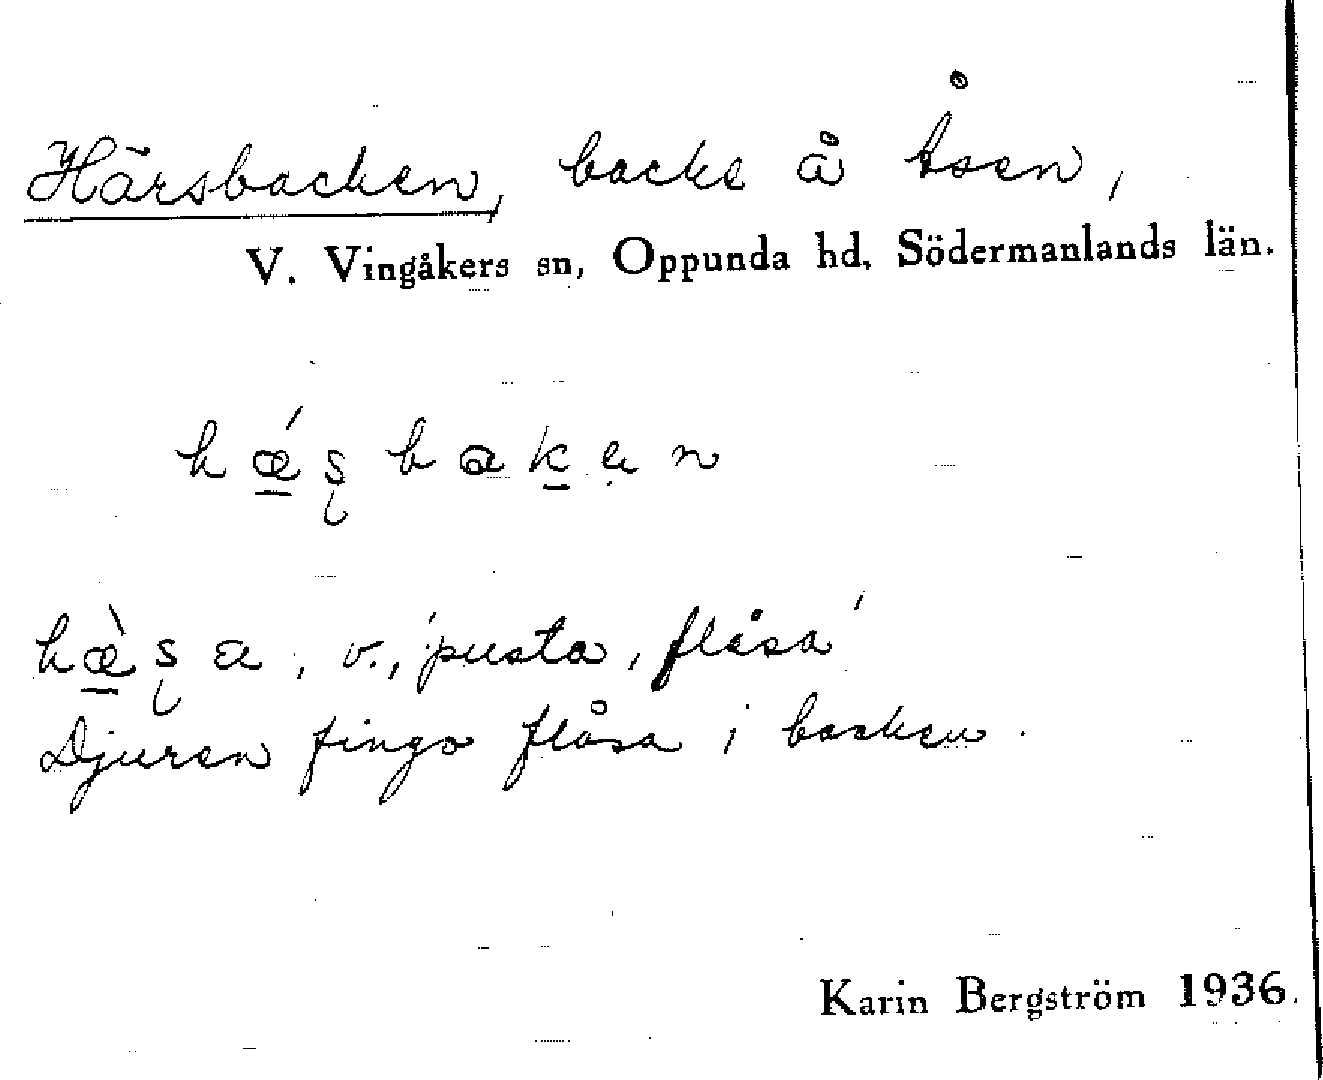 Härsbacken, backe å Åsen,
V. Vingåkers sn, Oppunda hd, Södermanlands län.
hǽ̠ʂbak̠ạn
hæ̠̀ʂa, v., 'pusta, flåsa'
Djuren fingo flåsa i backen.
Karin Bergström 1936.